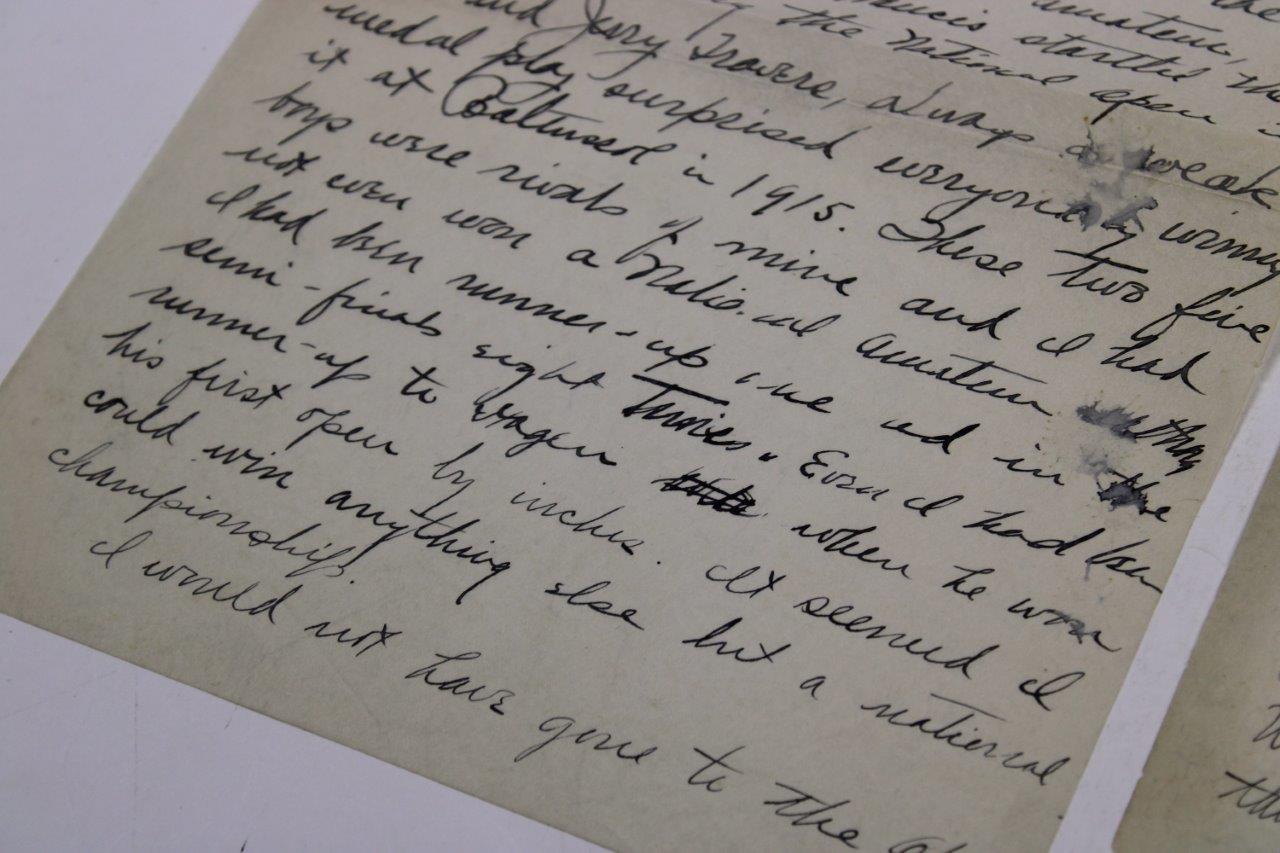 amateur, the
started the
the National open
and Jerry Travers, always a weak
medal play surprised everyone by winning
it at Baltusrol in 1915. These two fine
boys were rivals of mine and I had
not even won a National amateur
I had been runner-up one and in the
semi-finals eight Times. Even I had been
runner-up to Hagen when he won
his first open by inches. It seemed I
could win anything else but a national
championship.
I would not have gone to the